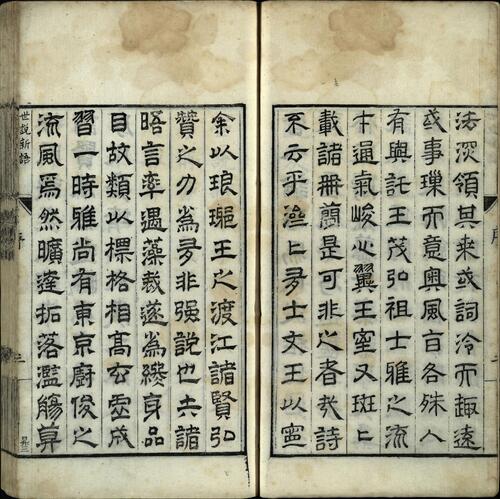 序
二
法深領其来或詞冷而趣遠
或事璅而意奧風旨各殊人
有興託王茂弘祖士雅之流
才通氣峻心翼王室又斑〻
載諸冊蕳是可非之者㢤詩
不云乎濟〻多士文王以寧
余以琅琊王之渡江諸賢弘
贊之力為多非强說也夫諸
晤言率遇藻裁遂為終身品
目故類以標格相高玄虛成
習一時雅尚有東京廚俊之
流風焉然曠達拓落濫觴莫
世說新語
序
三